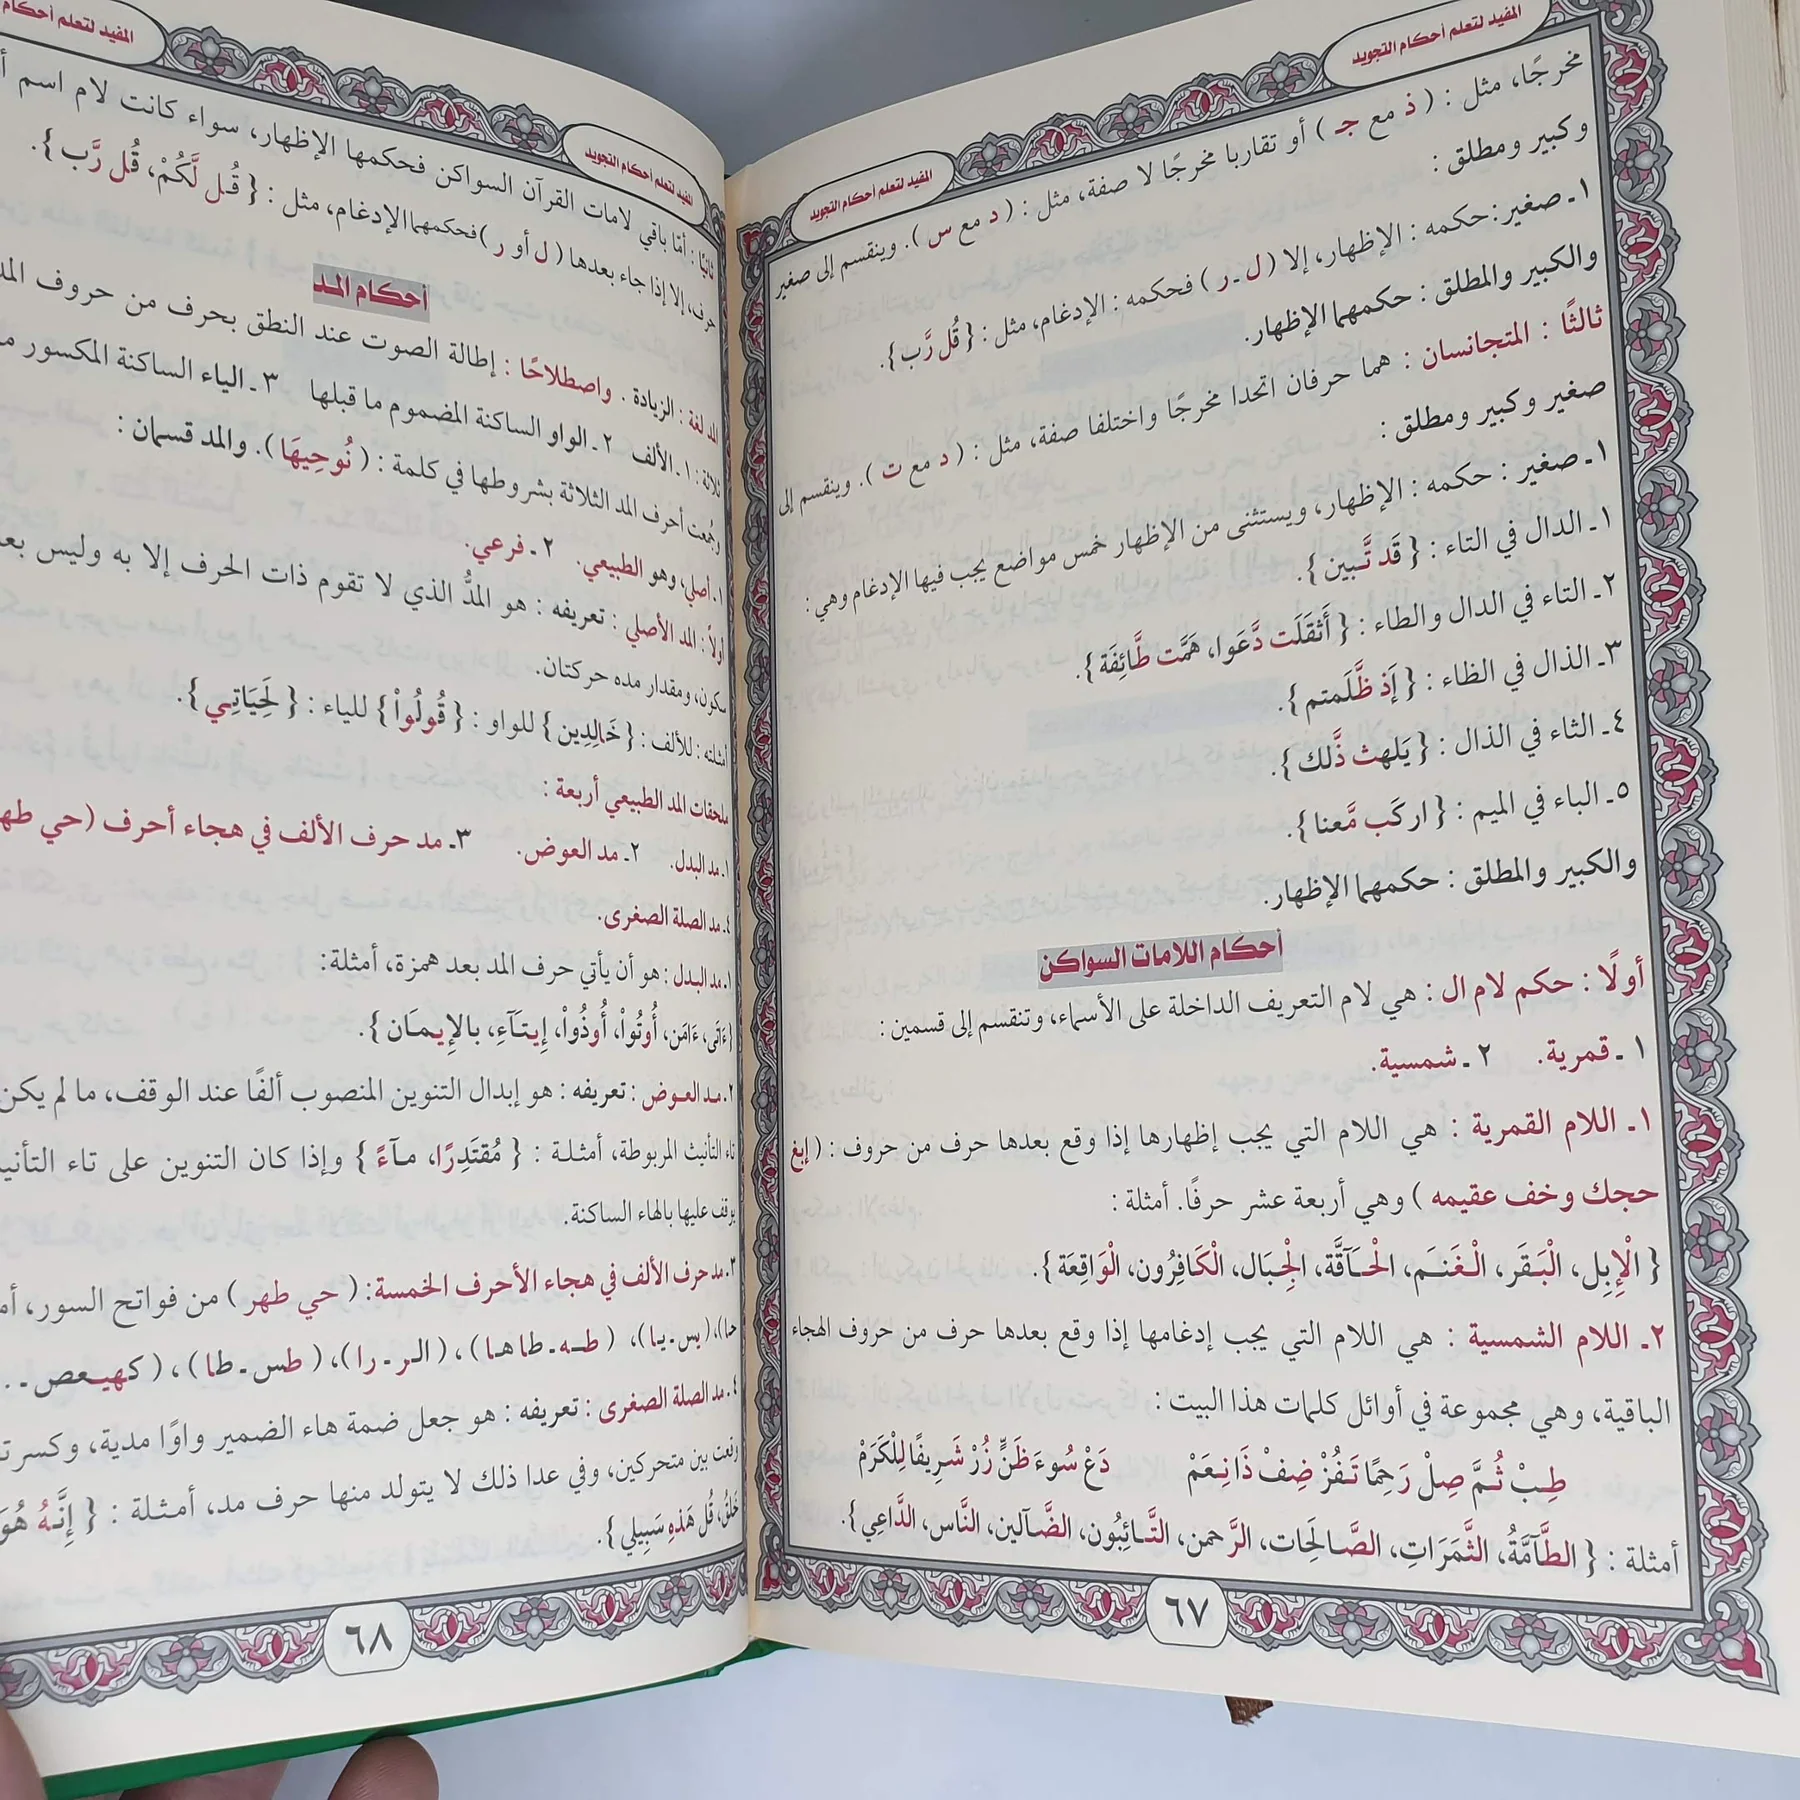 المفيد لتعلم أحكام التجويد
المفيد لتعلم أحكام التجويد
مخرجًا، مثل : ( ذ مع جـ ) أو تقاربا مخرجًا لا صفة، مثل : ( د مع س ). وينقسم إلى صغير
وكبير ومطلق :
١ـ صغير : حكمه : الإظهار، إلا ( ل ـ ر ) فحكمه : الإدغام، مثل : { قُل رَّب }.
والكبير والمطلق : حكمهما الإظهار.
ثالثًا : المتجانسان : هما حرفان اتحدا مخرجًا واختلفا صفة، مثل : ( د مع ت ). وينقسم إلى
صغير وكبير ومطلق :
١ـ صغير : حكمه : الإظهار، ويستثنى من الإظهار خمس مواضع يجب فيها الإدغام وهي :
١ـ الدال في التاء : { قَد تَّبين }.
٢ـ التاء في الدال والطاء : { أَثقَلَت دَّعَوا، هَمَّت طَّائِفَة }.
٣ـ الذال في الظاء : { إَذ ظَّلَمتم }.
٤ـ الثاء في الذال : { يَلهث ذَّلك }.
٥ـ الباء في الميم : { اركَب مَّعنا }.
والكبير والمطلق : حكمهما الإظهار.
أحكام اللامات السواكن
أولًا : حكم لام ال : هي لام التعريف الداخلة على الأسماء، وتنقسم إلى قسمين :
١ ـ قمرية. ٢ ـ شمسية.
١ـ اللام القمرية : هي اللام التي يجب إظهارها إذا وقع بعدها حرف من حروف : ( إبغ
حجك وخف عقيمه ) وهي أربعة عشر حرفًا. أمثلة :
{ الْإِبِل، الْبَـقَر، الْـغَنَـم، الْحَـآقَّة، الْجِبَال، الْكَافِرُون، الْوَاقِعَة }.
٢ـ اللام الشمسية : هي اللام التي يجب إدغامها إذا وقع بعدها حرف من حروف الهجاء
الباقية، وهي مجموعة في أوائل كلمات هذا البيت :
طِـبْ ثُـمَّ صِلْ رَحِمًا تَـفُزْ ضِفْ ذَا نِـعَمْ دَعْ سُوءَ ظَنٍّ زُرْ شَرِيفًا لِلْكَرَمْ
أمثلة : { الطَّآمَّةُ، الثَّمَرَاتِ، الصَّـالِحَات، الرَّحمن، التَّـائِبُون، الضَّـآلين، النَّاس، الدَّاعِي }.
٦٧
المفيد لتعلم أحكام
المفيد لتعلم أحكام التجويد
ثانيًا : أمّا باقي لامات القرآن السواكن فحكمها الإظهار، سواء كانت لام اسم
حرف، إلا إذا جاء بعدها ( ل أو ر ) فحكمهما الإدغام، مثل : { قُـل لَّكُمْ، قُل رَّب }.
أحكام المد
المد لغة : الزيادة . واصطلاحًا : إطالة الصوت عند النطق بحرف من حروف المد
ثلاثة : ١ـ الألف ٢ ـ الواو الساكنة المضموم ما قبلها ٣ ـ الياء الساكنة المكسور
وجُمعت أحرف المد الثلاثة بشروطها في كلمة : ( نُوحِيهَا ). والمد قسمان :
١ـ أصلي، وهو الطبيعي. ٢ ـ فرعي.
أولاً : المد الأصلي : تعريفه : هو المدُّ الذي لا تقوم ذات الحرف إلا به وليس
سكون، ومقدار مده حركتان.
أمثلته : للألف : { خَالِدِين } للواو : { قُولُواْ } للياء : { لِحَيَاتِـي }.
ملحقات المد الطبيعي أربعة :
١ـ مد البدل. ٢ـ مد العوض. ٣ـ مد حرف الألف في هجاء أحرف (حي
٤ـ مد الصلة الصغرى.
١ـ مد البدل : هو أن يأتي حرف المد بعد همزة، أمثلة:
{ ءَاتَى، ءَامَن، أُوتُواْ، أُوذُواْ، إِيتَـآءِ، بـالإِيـمَـان }.
٢ـ مد العـوض : تعريفه : هو إبدال التنوين المنصوب ألفًا عند الوقف، ما لم يكن
تاء التأنيث المربوطة، أمثـلـة : { مُقْتَدِرًا، مـآءً } وإذا كان التنوين على تاء
يوقف عليها بالهاء الساكنة.
٣ـ مد حرف الألف في هجاء الأحرف الخمسة : ( حي طهر ) من فواتح السور،
حا)، (يس ـ يـا)، ( طـه ـ طاهـا) ، ( الـر ـ را )، ( طس ـ طا ) ، ( كهيـعص ـ
٤ـ مد الصلة الصغرى : تعريفه : هو جعل ضمة هاء الضمير واوًا مدية،
وقعت بين متحركين، وفي عدا ذلك لا يتولد منها حرف مد، أمـثـلة : { إِنَّـهُ هُوَ
خَلقُ، قُل هَذِهِ سَبِيلي }.
٦٨